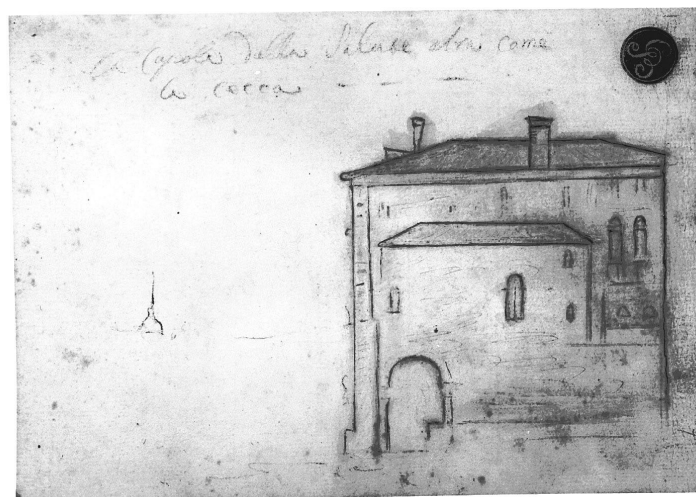 La Cupola della Salute alta come
la cecca